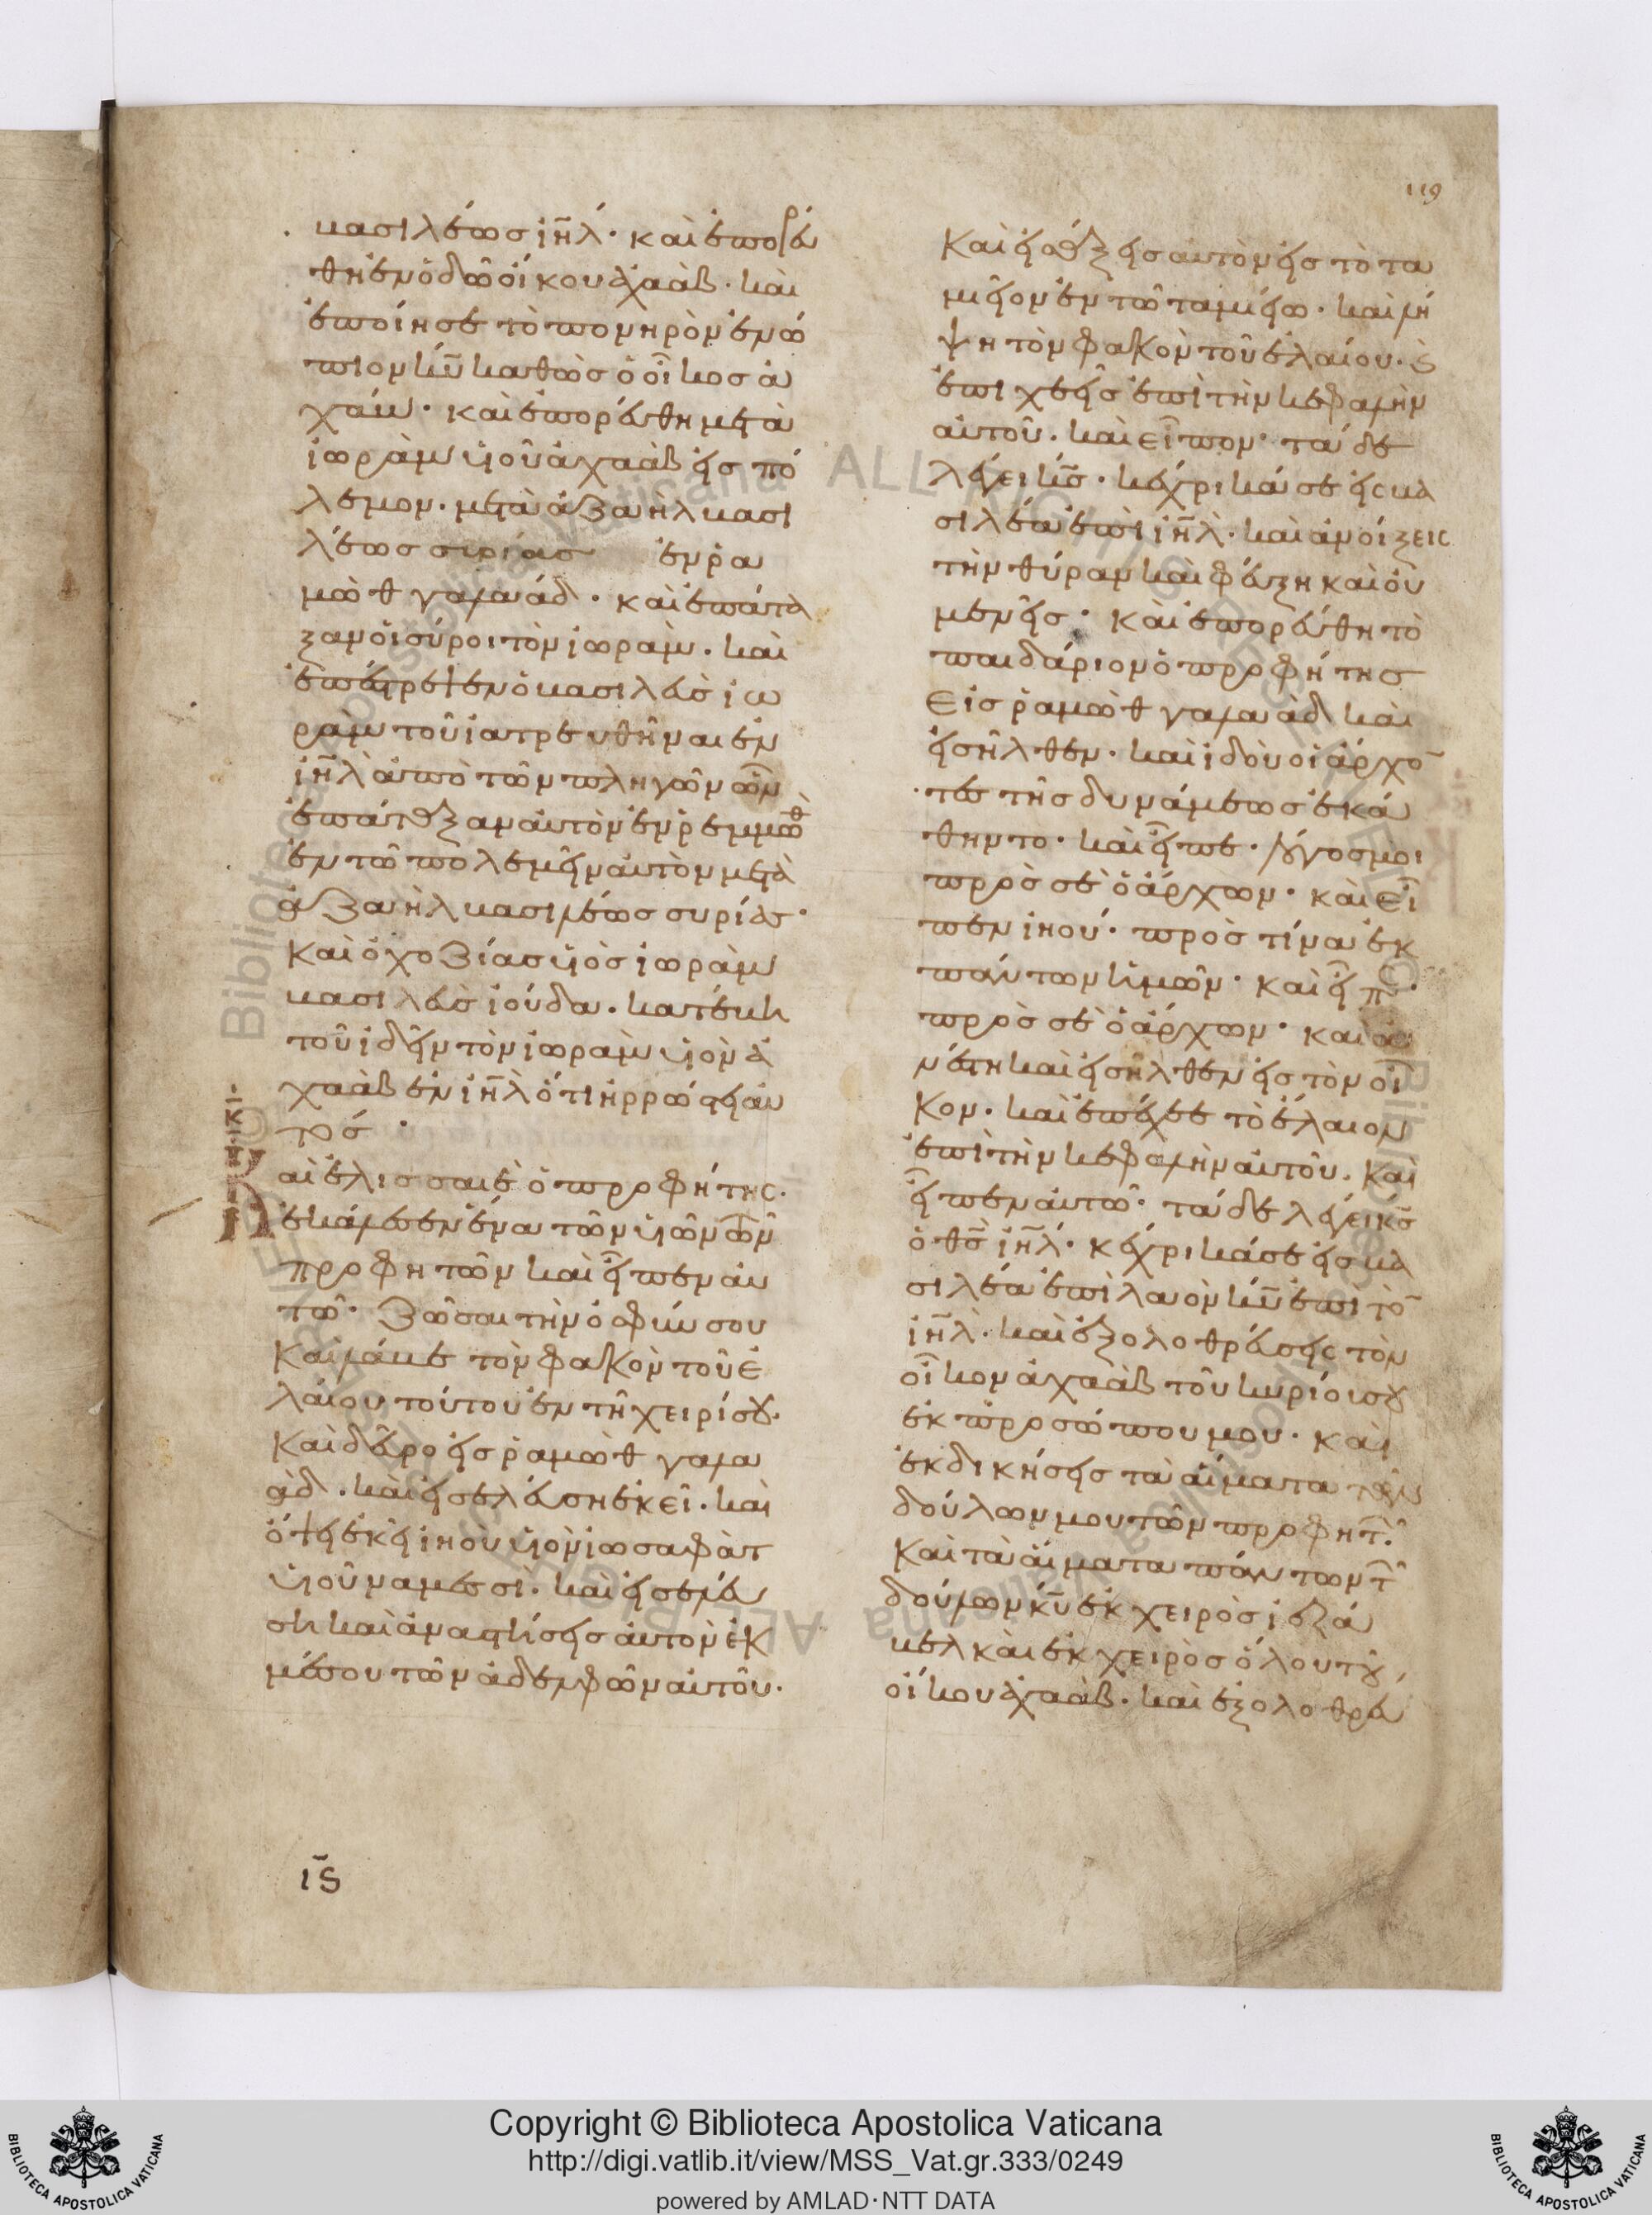 119
βασιλέως ἰη̅λ· καὶ ἐπορεύ
θη ἐν ὁδῶ οἴκου ἀχαὰβ· καὶ
ἐποίησε τὸ πονηρὸν ἐνώ
πιον κυ̅ καθὼς ὁ οἶκος ἀ
χαάβ· καὶ ἐπορεύθη μετὰ
ἰωρὰμ υἱοῦ ἀχαὰβ εἰς πό
λεμον· μετὰ ἀζαὴλ βασι
λέως συρίας ἐν ῥα
μὼθ γαλαάδ· καὶ ἐπάτα
ξαν οἱ σύροι τὸν ἰωράμ· καὶ
ἐπέστρεψεν ὁ βασιλεὺς ἰω
ρὰμ τοῦ ἰατρευθῆναι ἐν
ἰη̅λ ἀπὸ τῶν πληγῶν ὧν
ἐπάταξαν αὐτὸν ἐν ῥεμμὼθ
ἐν τῶ πολεμεῖν αὐτὸν μετὰ
ἀζαὴλ βασιλέως συρίας·
καὶ ὀχοζίας υἱὸς ἰωρὰμ
βασιλεὺς ἰούδα· κατέβη
τοῦ ἰδεῖν τὸν ἰωρὰμ υἱὸν ἀ
χαὰβ ἐν ἰη̅λ ὅτι ἠρρώστει αὐ
τός·
Καὶ ἐλισσαιὲ ὁ προφήτης·
ἐκάλεσεν ἕνα τῶν υἱῶν τῶν
προφητῶν καὶ εἶπεν αὐ
τῶ· ζῶσαι τὴν ὀσφύν σου
καὶ λάβε τὸν φακὸν τοῦ ἐ
λαίου τούτου ἐν τῆ χειρί σου·
καὶ δεῦρο εἰς ῥαμὼθ γαλα
άδ· καὶ εἰσελεύση ἐκεῖ· καὶ
ὄψει ἐκεῖ ἰηοὺ υἱὸν ἰωσαφὰτ
υἱοῦ ναμεσσί· καὶ εἰσελεύ
ση καὶ ἀναστήσεις αὐτὸν ἐκ
μέσου τῶν ἀδελφῶν αὐτοῦ·
ις̅
καὶ εἰσάξεις αὐτὸν εἰς τὸ τα
μιεῖον ἐν τῶ ταμιείω· καὶ λή
ψη τὸν φακὸν τοῦ ἐλαίου· καὶ
ἐπιχεεῖς ἐπὶ τὴν κεφαλὴν
αὐτοῦ· καὶ εἶπον· τάδε
λέγει κς̅· κέχρικά σε εἰς βα
σιλέα ἐπὶ ἰη̅λ· καὶ ἀνοίξεις
τὴν θύραν καὶ φεύξη καὶ οὐ
μενεῖς· καὶ ἐπορεύθη τὸ
παιδάριον ὁ προφήτης
εἰς ῥαμὼθ γαλαὰδ καὶ
εἰσῆλθεν· καὶ ἰδοὺ οἱ ἄρχο̅
τες τῆς δυνάμεως ἐκά
θηντο· καὶ εἶπε· λόγος μοι
πρὸς σὲ ὁ ἄρχων· καὶ εἶ
πεν ἰηού· πρὸς τίνα ἐκ
πάντων ἡμῶν· καὶ εἶπε·
πρὸς σὲ ὁ ἄρχων· καὶ ἀ
νέστη καὶ εἰσῆλθεν εἰς τὸν οἶ
κον· καὶ ἐπέχεε τὸ ἔλαιον
ἐπὶ τὴν κεφαλὴν αὐτοῦ· καὶ
εἶπεν αὐτῶ· τάδε λέγει κς̅
ὁ θς̅ ἰη̅λ· κέχρικά σε εἰς βα
σιλέα ἐπὶ λαὸν κυ̅ ἐπὶ τὸ̅
ἰη̅λ· καὶ ἐξολοθρεύσεις τὸν
οἶκον ἀχαὰβ τοῦ κυρίου σου
ἐκ προσώπου μου· καὶ
ἐκδικήσεις τὰ αἵματα τῶν
δούλων μου τῶν προφητῶν·
καὶ τὰ αἵματα πάντων τῶν
δούλων κυ̅ ἐκ χειρὸς ἰεζά
βελ καὶ ἐκ χειρὸς ὅλου τοῦ
οἴκου ἀχαάβ· καὶ ἐξολοθρεύ
Copyright © Biblioteca Apostolica Vaticana
http://digi.vatlib.it/view/MSS_Vat.gr.333/0249
powered by AMLAD·NTT DATA